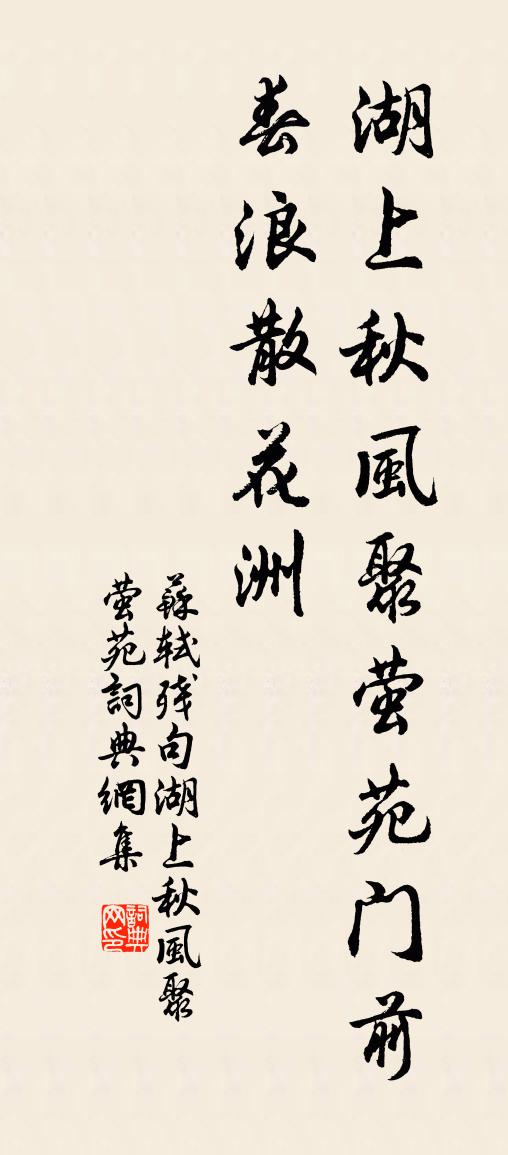 湖上秋風聚萤苑门前
春浪散花洲
蘇軾残句湖上秋風聚
萤苑詞典網集
詞典网印